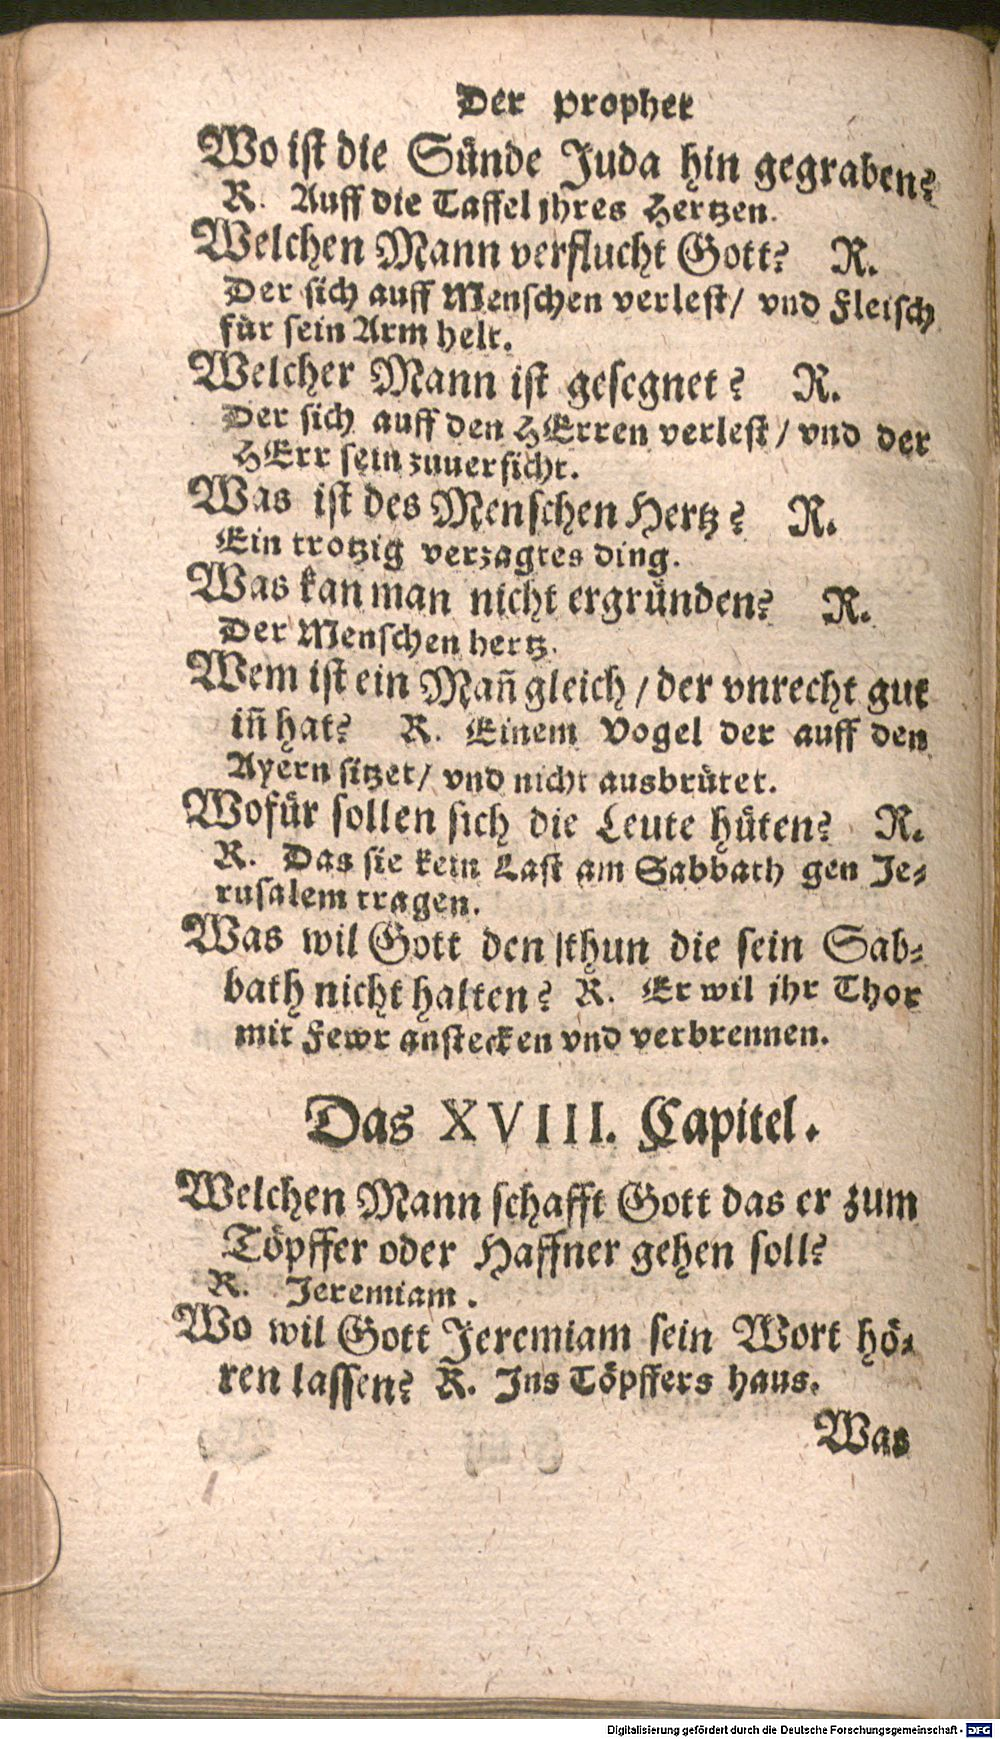 Der Prophet
Wo ist die Sünde Juda hin gegraben?
R. Auff die Taffel jhres Hertzen.
Welchen Mann verflucht Gott? R.
Der sich auff Menschen verlest/ vnd Fleisch
für sein Arm helt.
Welcher Mann ist gesegnet? R.
Der sich auff den HErren verlest/ vnd der
HErr sein zuuersicht.
Was ist des Menschen Hertz? R.
Ein trotzig verzagtes ding.
Was kan man nicht ergründen? R.
Der Menschen hertz.
Wem ist ein Mañ gleich/ der vnrecht gut
iñ hat? R. Einem Vogel der auff den
Ayern sitzet/ vnd nicht ausbrütet.
Wofür sollen sich die Leute hüten? R.
R. Das sie kein Last am Sabbath gen Je-
rusalem tragen.
Was wil Gott den|thun die sein Sab-
bath nicht halten? R. Er wil jhr Thor
mit Fewr anstecken vnd verbrennen.
Das XVIII. Capitel.
Welchen Mann schafft Gott das er zum
Töpffer oder Haffner gehen soll?
R. Jeremiam.
Wo wil Gott Jeremiam sein Wort hö-
ren lassen? R. Ins Töpffers haus.
Was
Digitalisierung gefördert durch die Deutsche Forschungsgemeinschaft - DFG